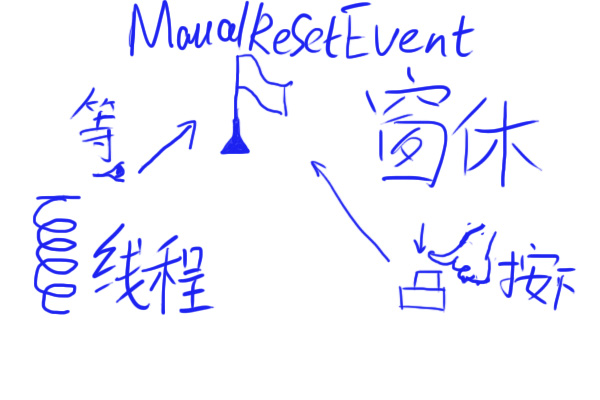 ManualResetEvent
等
窗休
线程
按下